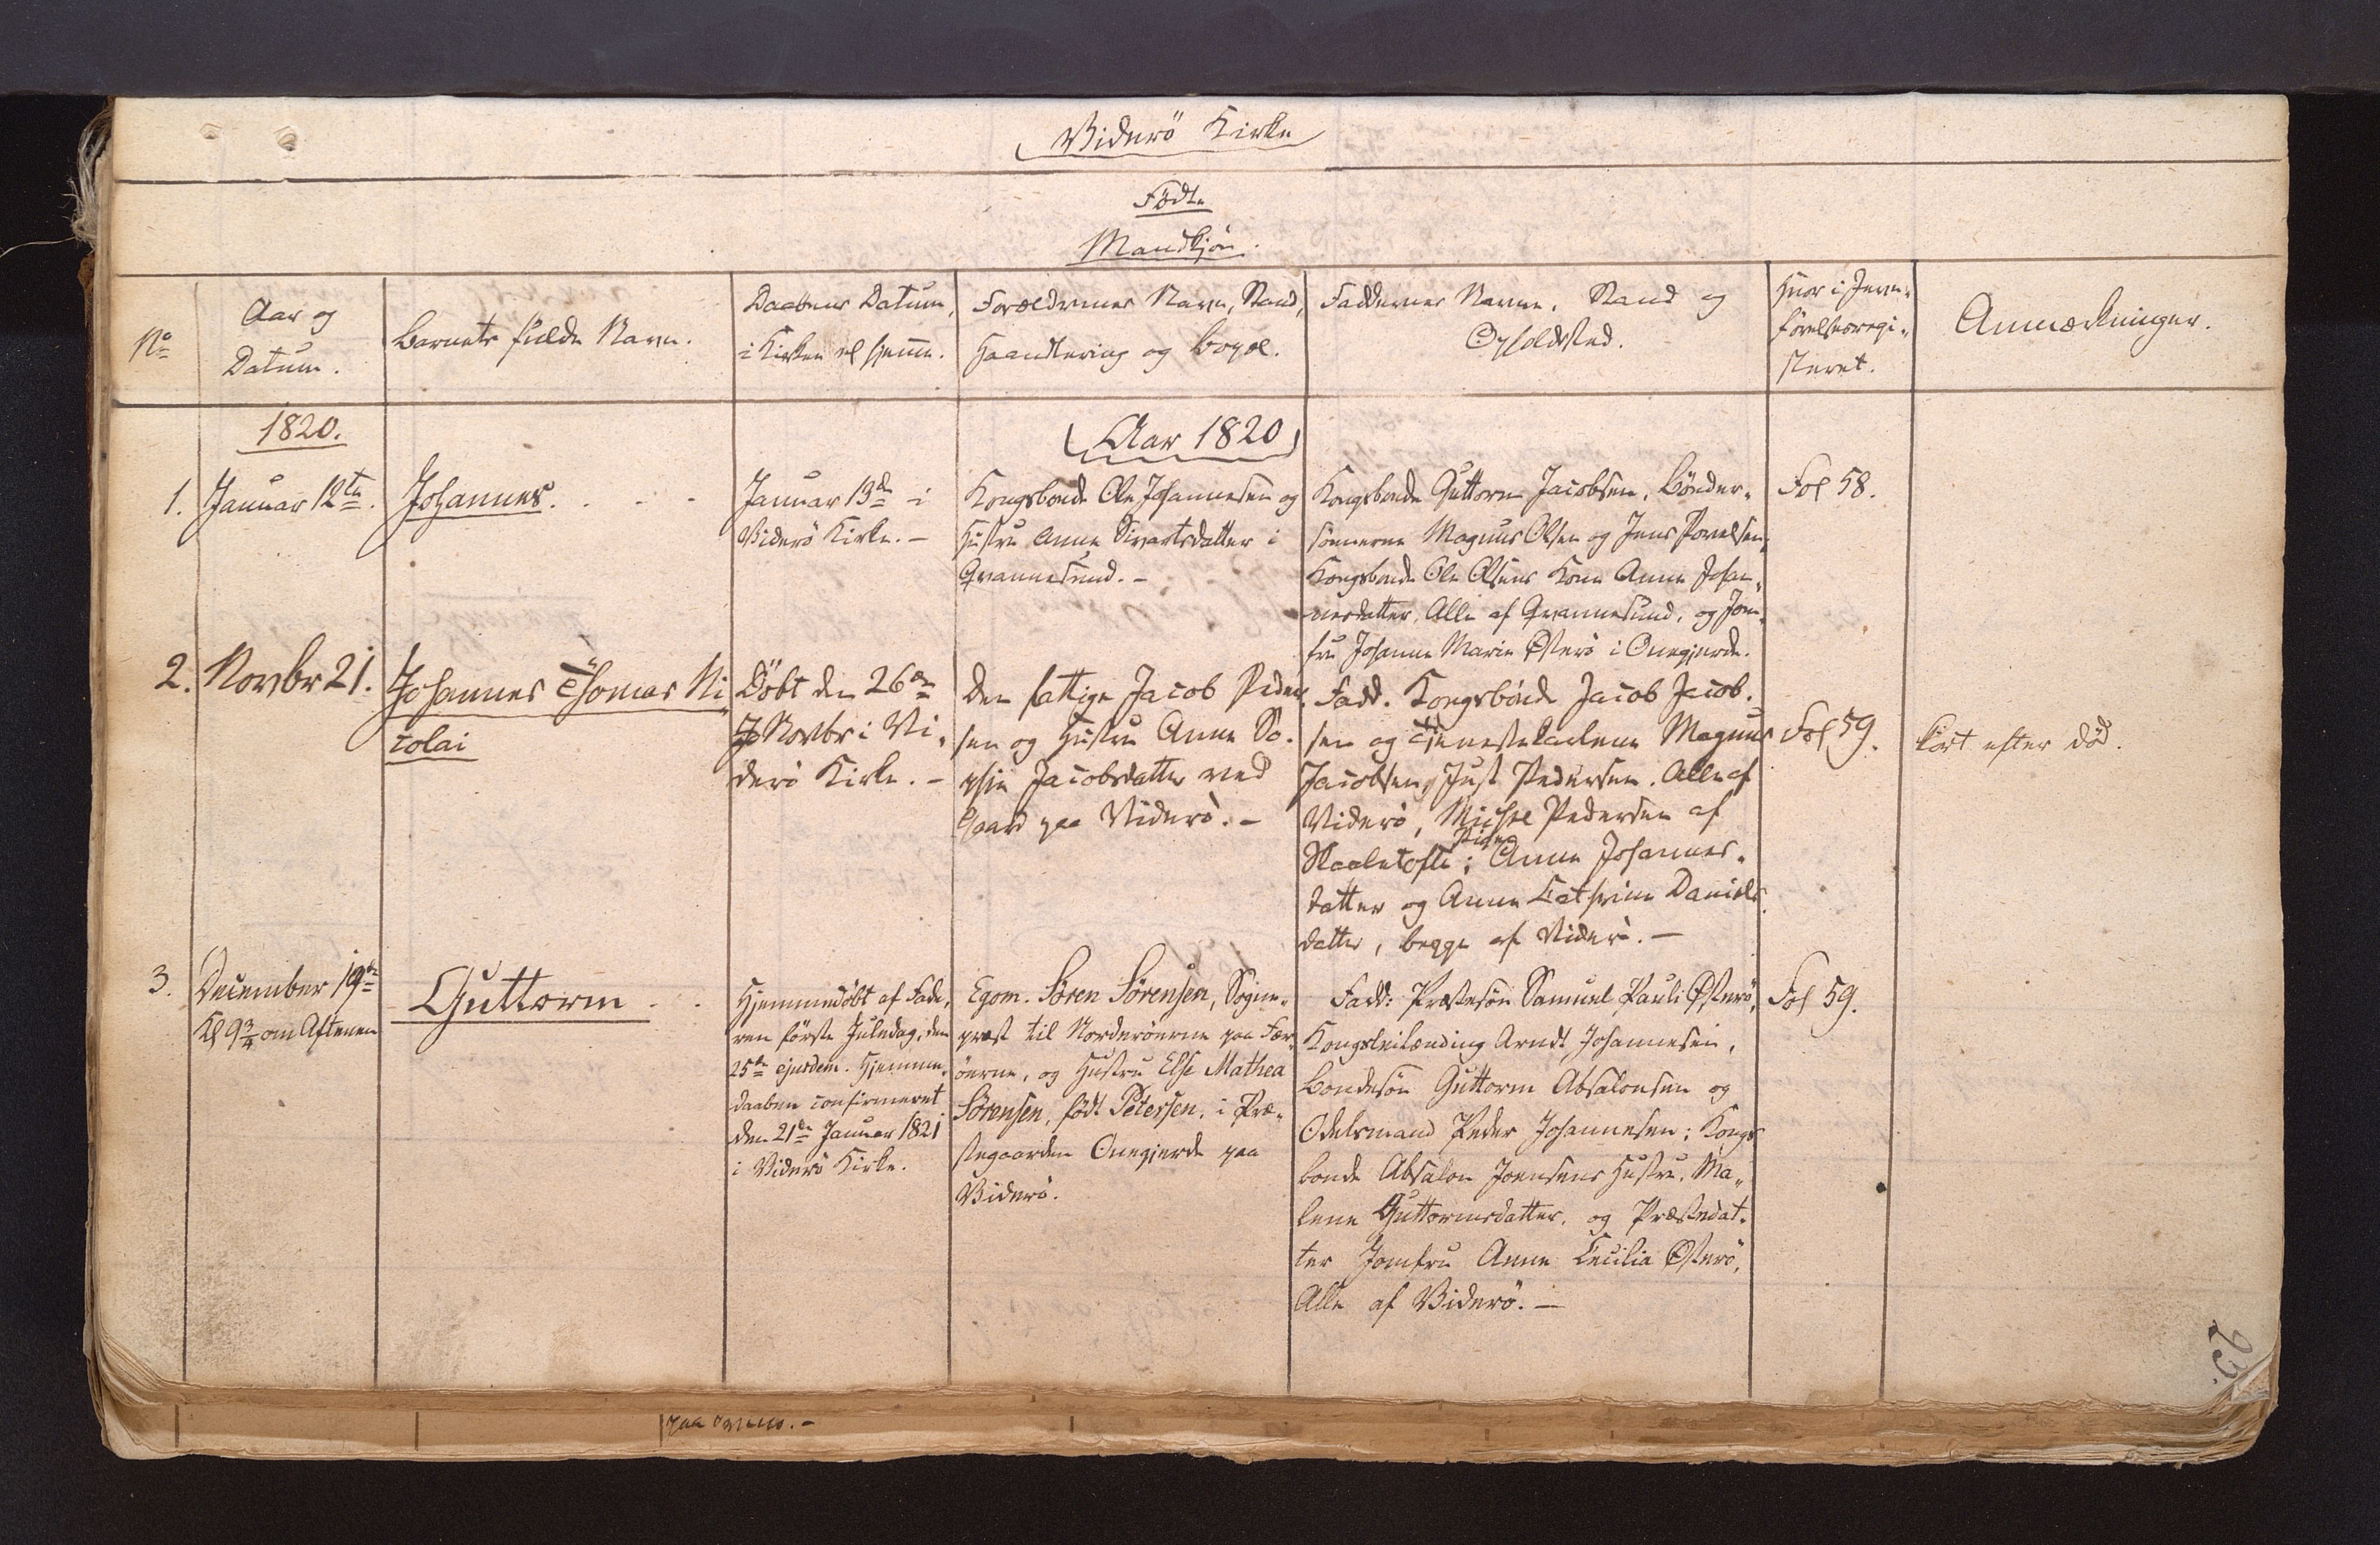 Viderö Kirke
Födte
Mandkjön.
No
Aar og
Datum.
Barnets fulde Navn.
Daabens Datum,
i Kirken el Hjeme.
Forældrenes Navn, Stand,
Haandtering og Bopæl.
Faddernes Navne, Stand og
Opholdssted.
Hvor i Jevn-
förelsesregi-
steret.
Anmærkninger.
1820.
Aar 1820
1.
Januar 12te.
Johannes. . - -
Januar 13de i
Viderö Kirke. -
Kongsbonde Ole Johannesen og
Hustru Anne Sivartsdatter i
Qvannesund. -
Kongsbonde Guttorm Jacobsen, Bönder-
sönnerne Magnus Olsen og Jens Povelsen,
Kongsbonde Ole Olsens Kone Anne Johan-
nesdatter, Alle af Qvannesund, og Jom-
fru Johanne Marie Österö i Onegjerde.
Fol 58.
2.
Novbr 21.
Johannes Thomas Ni-
colai
Döbt den 26de
Novbr i Vi-
derö Kirke. -
Den fattige Jacob Peder-
sen og Hustru Anne So-
phie Jacobsdatter ved
Gaard paa Viderö. -
Fadd. Kongsbönde Jacob Jacob-
sen og Tjenestekarlene Magnus
Jacobsen, Just Pedersen. Alle af
Viderö, Michel Pedersen af
Skaaletofte; Pigen Anne Johannes-
datter og Anne Cathrine Daniels-
datter, begge af Viderö. -
Fol 59.
kort efter död.
3.
December 19de
Kl 9¾ om Aftenen
Guttorm - -
Hjemmedöbt af Fade-
ren förste Juledag, den
25de ejusdem. Hjemme-
daaben confirmeret
den 21de Januar 1821
i Viderö Kirke.
Egom. Sören Sörensen, Sogne-
præst til Norderöerne paa Fær-
öerne, og Hustru Else Mathea
Sörensen, född Petersen, i Præ-
stegaarden Onegjerde paa
Viderö.
Fadd: Præstesön Samuel Pauli Österö,
Kongsleilænding Arndt Johannesen,
Bondesön Guttorm Absalonsen og
Odelsmand Peder Johannesen; Kongs
bonde Absalon Joensens Hustru, Ma-
lene Guttormsdatter, og Præstedat-
ter Jomfru Anne Cecilia Österö,
Alle af Viderö. -
Fol 59.